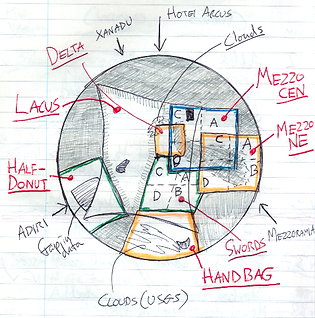 XANADU
HOTEI ARCUS
Clouds
DELTA
MEZZO
CEN
LACUS
C
A
MEZZO
NE
C
A
B
HALF-
DONUT
C
A
D
D
B
ADIRI
Gap in
data
SWORDS
MEZZORAMIA
HANDBAG
CLOUDS (USGS)